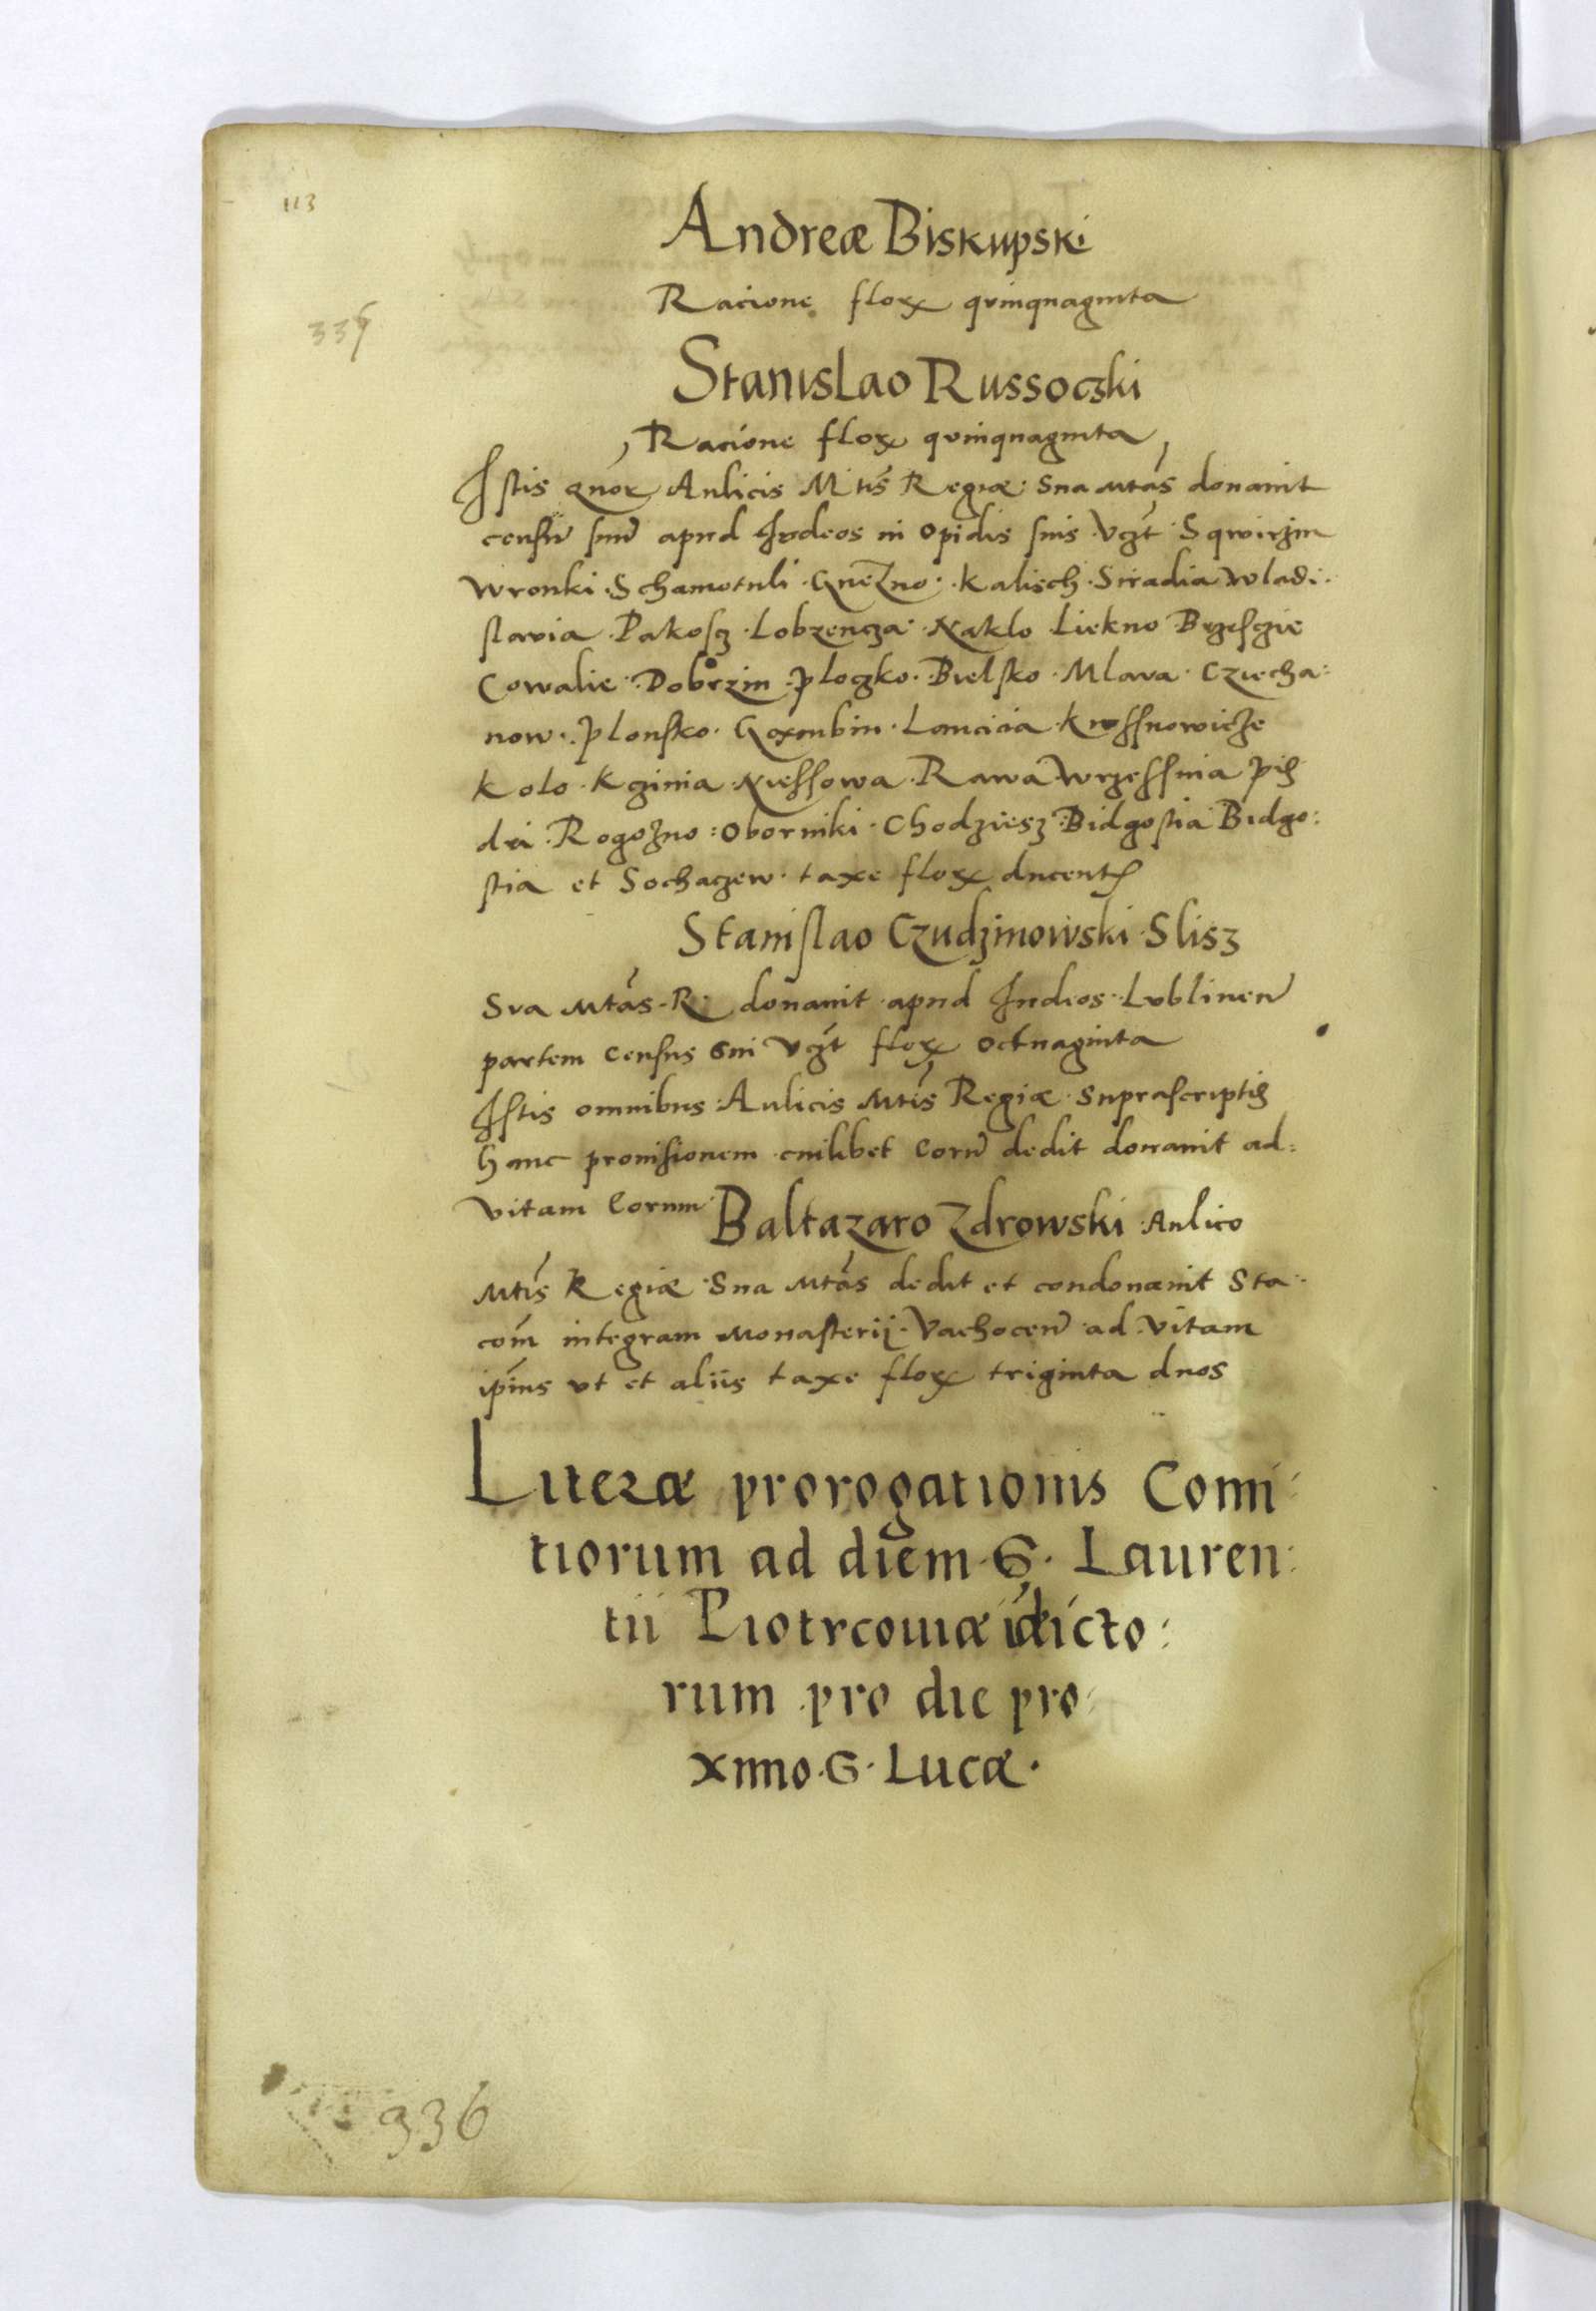 113
Andreæ Biskupski
335
Racione flox quinquaginta
Stanislao Russoczki
Racione flox quinquaginta
Istis quor Aulicis Mtis Regiæ Sua Mtas donauit
censū suū apud Judeos in opidis suis vczt Sqwirzin
Wronki Schamotuli Gnezno Kalisch Siradia Wladi
slavia Pakosz Lobzencza Naklo Liekno Brzesczie
Cowalie Dobrzin Ploczko Bielsko Mlava Cziecha:
now Plonsko Goxmbin Lancicia Krossnowicze
Kolo Kczinia Niessowa Rawa Wrzessnia Piz
dri Rogozno Oborniki Chodziesz Bidgostia Bidgo:
stia et Sochaczew taxe flox ducent
Stanislao Czudzinowski Slisz
Sva Mtas R donauit apud Judeos Lublinen
partem census sui vczt flox octuaginta
Istis omnibus Aulicis Mtis Regiæ suprascriptis
hanc prouisionem cuilibet eorū dedit donauit ad:
vitam eorum
Baltazaro Zdrowski Aulico
Mtis Regiæ Sua Mtas dedit et condonauit Sta
com integram Monasterij Vachocen ad vitam
ipius vt et aliis taxe flox triginta duos
Literæ prorogationis Comi
tiorum ad diem S. Lauren:
tii Piotrcouiæ idicto:
rum pro die pro
ximo S. Lucæ.
936